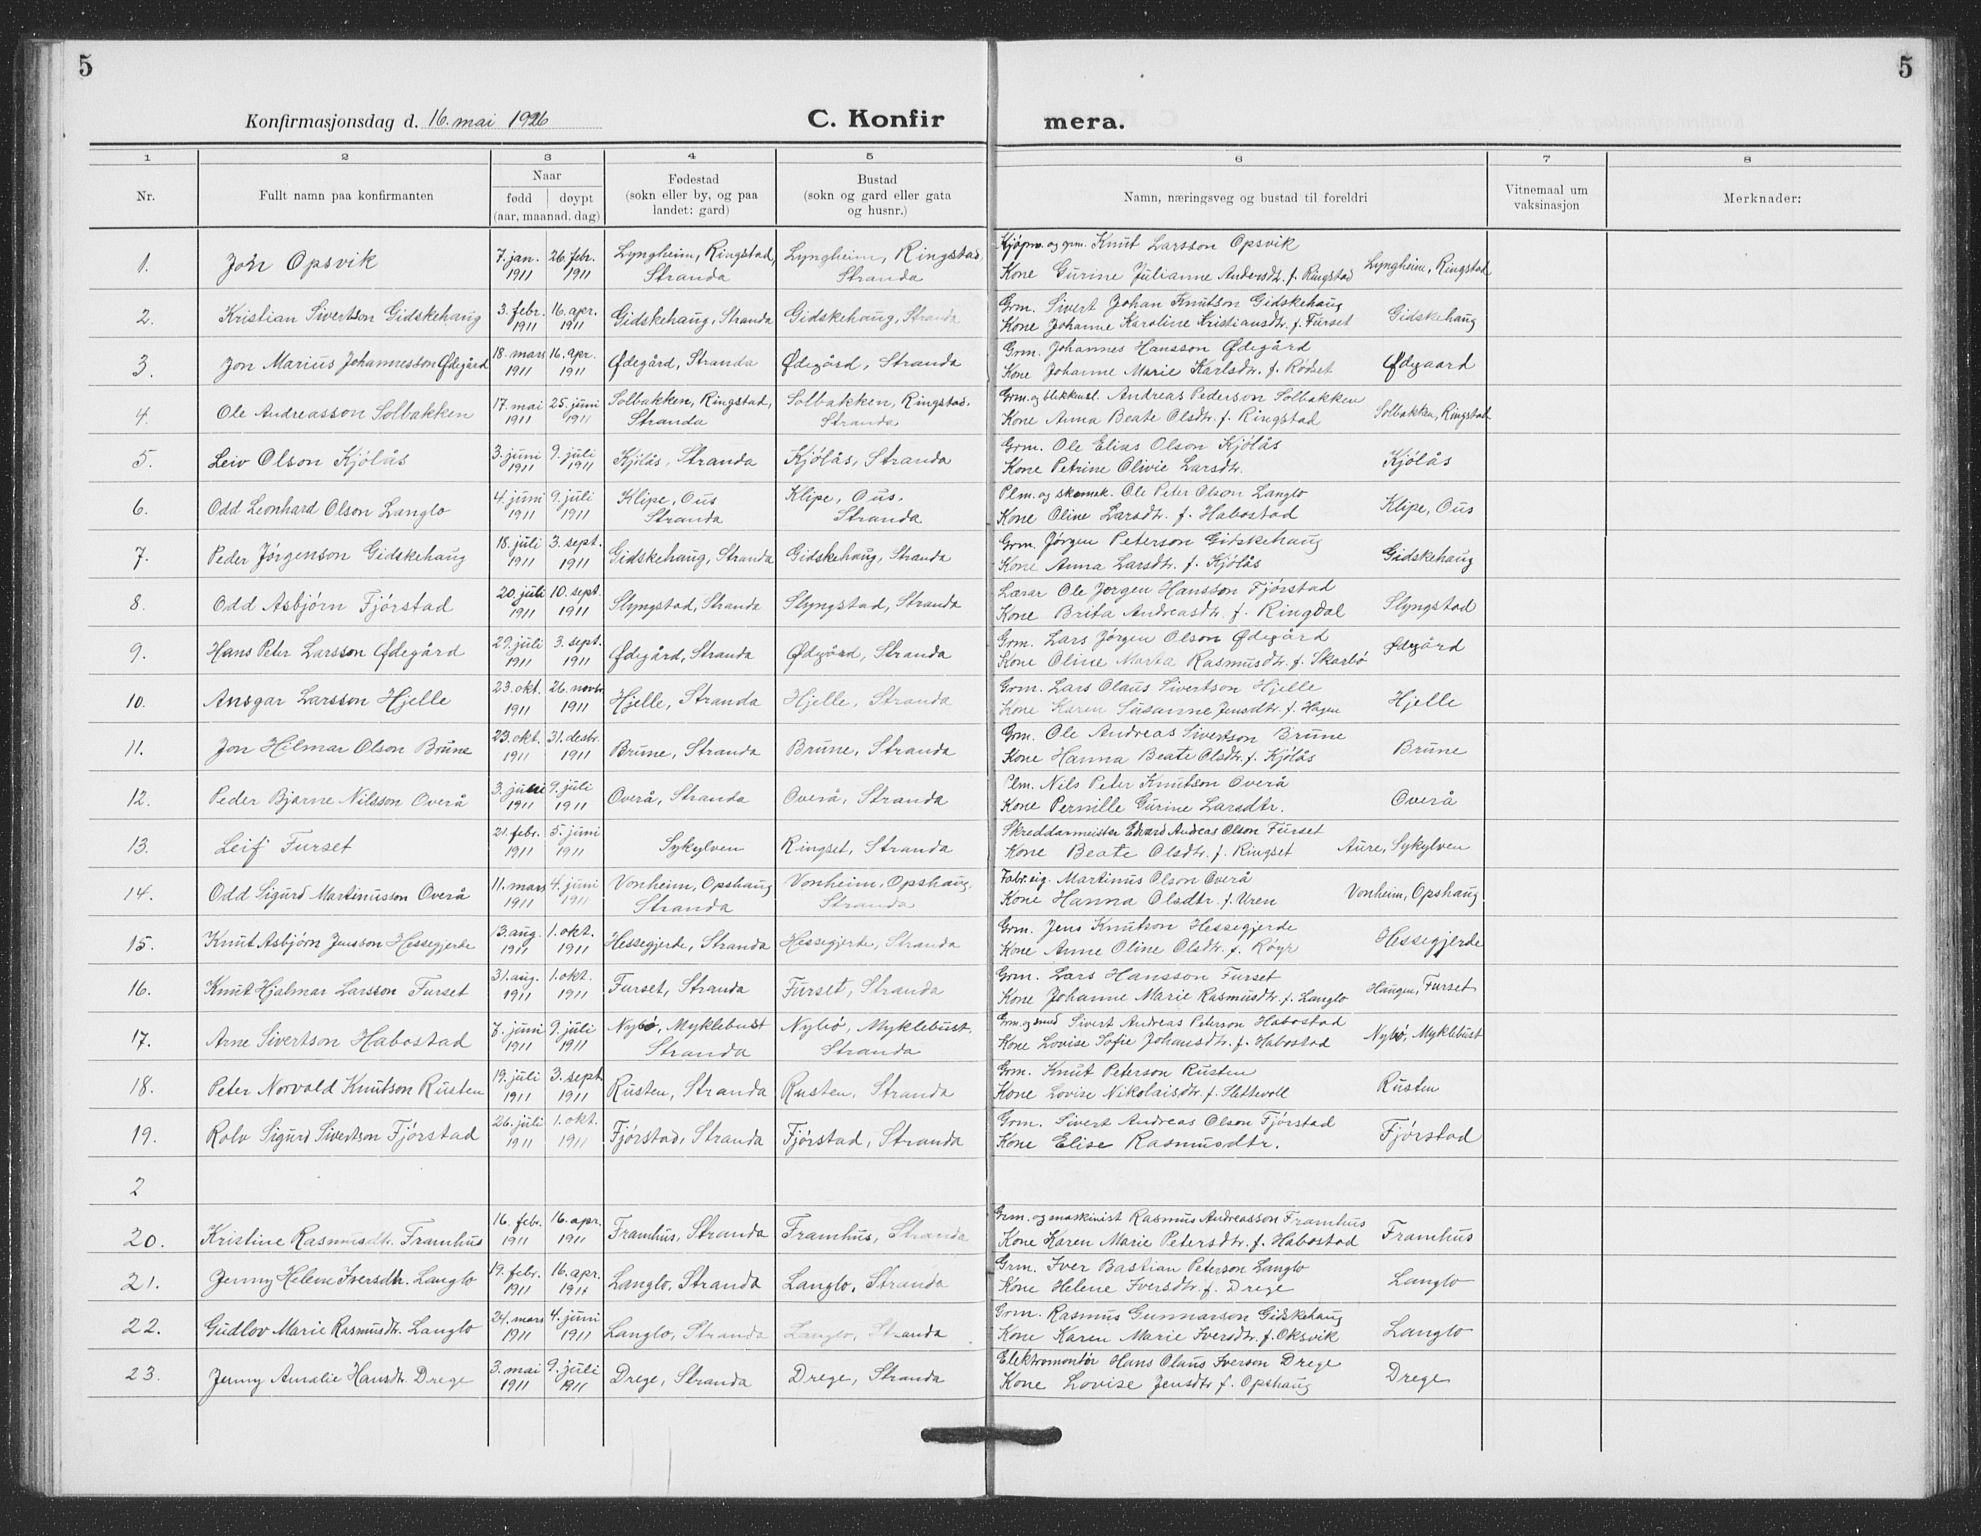 5
5
Konfirmasjonsdag d. 16. mai 1926
C. Konfir
mera.
1 2 3 4 5 6 7 8
Nr.
Fullt namn paa konfirmanten
Naar
fødd døypt
(aar, maanad, dag)
Fødestad
(sokn eller by, og paa
landet: gard)
Bustad
(sokn og gard eller gata
og husnr.)
Namn, næringsveg og bustad til foreldri
Vitnemaal um
vaksinasjon
Merknader:
1. Jon Opsvik 7. jan. 1911 26. febr. 1911 Lyngheim, Ringstad, Stranda Lyngheim, Ringstad, Stranda
Kjøpm. og grm. Knut Larsson Opsvik
Kone Gurine Julianne Andersdtr. f. Ringstad Lyngheim, Ringstad
2. Kristian Sivertson Gidskehaug 3. febr. 1911 16. apr. 1911 Gidskehaug, Stranda Gidskehaug, Stranda
Grm. Sivert Johan Knutson Gidskehaug
Kone Johanne Karoline Kristiansdtr. f. Furset Gidskehaug
3. Jon Marius Johannesson Ødegård 18. mars 1911 16. apr. 1911 Ødegård, Stranda Ødegård, Stranda
Grm. Johannes Hansson Ødegård
Kone Johanne Marie Karlsdtr. f. Rødset Ødegaard
4. Ole Andreasson Solbakken 17. mai 1911 25. juni 1911 Solbakken, Ringstad, Stranda Solbakken, Ringstad. Stranda
Grm. og blikksl. Andreas Pederson Solbakken
Kone Anna Beate Olsdtr. f. Ringstad Solbakken, Ringstad
5. Leiv Olson Kjølås 3. juni 1911 9. juli 1911 Kjølås, Stranda Kjølås, Stranda
Grm. Ole Elias Olson Kjølås
Kone Petrine Olivie Larsdtr. Kjølås
6. Odd Leonhard Olson Langlo 4. juni 1911 9. juli 1911 Klipe, Ous Stranda Klipe, Ous. Stranda
Plm. og skomak. Ole Peter Olson Langlo
Kone Oline Larsdtr. f. Habostad Klipe, Ous
7. Peder Jørgenson Gidskehaug 18. juli 1911 3. sept. 1911 Gidskehaug, Stranda Gidskehaug, Stranda
Grm. Jørgen Peterson Gidskehaug
Kone Anna Larsdtr. f. Kjølås Gidskehaug
8. Odd Asbjørn Fjørstad 20. juli 1911 10. sept. 1911 Slyngstad, Stranda Slyngstad, Stranda
Lærar Ole Jørgen Hansson Fjørstad
Kone Brita Andreasdtr. f. Ringdal Slyngstad
9. Hans Peter Larsson Ødegård 29. juli 1911 3. sept. 1911 Ødegård, Stranda Ødegård, Stranda
Grm. Lars Jørgen Olson Ødegård
Kone Oline Marta Rasmusdtr. f. Skarbø Ødegård
10. Ansgar Larsson Hjelle 23. okt. 1911 26. novbr 1911 Hjelle, Stranda Hjelle, Stranda
Grm. Lars Olaus Sivertson Hjelle
Kone Karen Susanne Jensdtr. f. Hagen Hjelle
11. Jon Hilmar Olson Brune 23. okt. 1911 31. desbr. 1911 Brune, Stranda Brune, Stranda
Grm. Ole Andreas Sivertson Brune
Kone Hanna Beate Olsdtr. f. Kjølås Brune
12. Peder Bjarne Nilsson Overå 3. juni 1911 9. juli 1911 Overå, Stranda Overå, Stranda
Plm. Nils Peter Knutson Overå
Kone Pernille Gurine Larsdtr. Overå
13. Leif Furset 21. febr. 1911 5. juni 1911 Sykylven Ringset, Stranda
Skreddarmeister Edvard Andreas Olson Furset
Kone Beate Olsdtr. f. Ringset Aure, Sykylven
14. Odd Sigurd Martinusson Overå 11. mars 1911 4. juni 1911 Vonheim, Opshaug Stranda Vonheim, Opshaug, Stranda
Fabr.eig. Martinus Olson Overå
Kone Hanna Olsdtr. f. Uren Vonheim, Opshaug
15. Knut Asbjørn Jensson Hessegjerde 13. aug. 1911 1. okt. 1911 Hessegjerde, Stranda Hessegjerde, Stranda
Grm. Jens Knutson Hessegjerde
Kone Anne Oline Olsdtr. f. Røyr Hessegjerde
16. Knut Hjalmar Larsson Furset 31. aug. 1911 1. okt. 1911 Furset, Stranda Furset, Stranda
Grm. Lars Hansson Furset
Kone Johanne Marie Rasmusdtr. f. Langlo Haugen, Furset
17. Arne Sivertson Habostad 7. juni 1911 9. juli 1911 Nybø, Myklebust Stranda Nybø, Myklebust. Stranda
Grm. og smed Sivert Andreas Peterson Habostad
Kone Lovise Sofie Johansdtr. f. Habostad Nybø, Myklebust
18. Peter Norvald Knutson Rusten 19. juli 1911 3. sept 1911 Rusten, Stranda Rusten, Stranda
Grm. Knut Peterson Rusten
Kone Lovise Nikolaisdtr. f. Slettevoll Rusten
19. Rolv Sigurd Sivertson Fjørstad 26. juli 1911 1. okt. 1911 Fjørstad, Stranda Fjørstad, Stranda
Grm. Sivert Andreas Olson Fjørstad
Kone Elise Rasmusdtr. Fjørstad
2
20. Kristine Rasmusdtr. Framhus 16. febr. 1911 16. apr. 1911 Framhus, Stranda Framhus, Stranda
Grm. og maskinist Rasmus Andreasson Framhus
Kone Karen Marie Petersdtr. f. Habostad Framhus
21. Jenny Helene Iversdtr. Langlo 19. febr. 1911 16. apr. 1911 Langlo, Stranda Langlo, Stranda
Grm. Iver Bastian Peterson Langlo
Kone Helene Iversdtr. f. Drege Langlo
22. Gudlov Marie Rasmusdtr. Langlo 24. mars 1911 4. juni 1911 Langlo, Stranda Langlo, Stranda
Grm. Rasmus Gunnarson Gidskehaug
Kone Karen Marie Iversdtr. f. Oksvik Langlo
23. Jenny Amalie Hansdtr. Drege 3. mai 1911 9. juli 1911 Drege, Stranda Drege, Stranda
Elektromontør Hans Olaus Iverson Drege
Kone Lovise Jensdtr f. Opshaug Drege